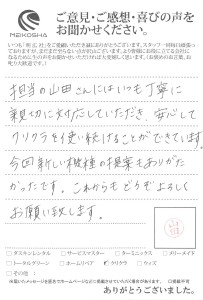 MEIKOSHA
ご意見・ご感想・喜びの声を
お聞かせください。
担当の山田さんにはいつも丁寧に
親切に対応していただき、安心して
クリクラを使い続けることができています。
今回新しい機種の提案もありがた
かったです。これからもどうぞよろしく
お願い致します。
□ダスキンレンタル □サービスマスター □ターミニックス □メリーメイド
□トータルグリーン □ホームリペア ☑クリクラ □ウィズ
□その他：
ありがとうございました。